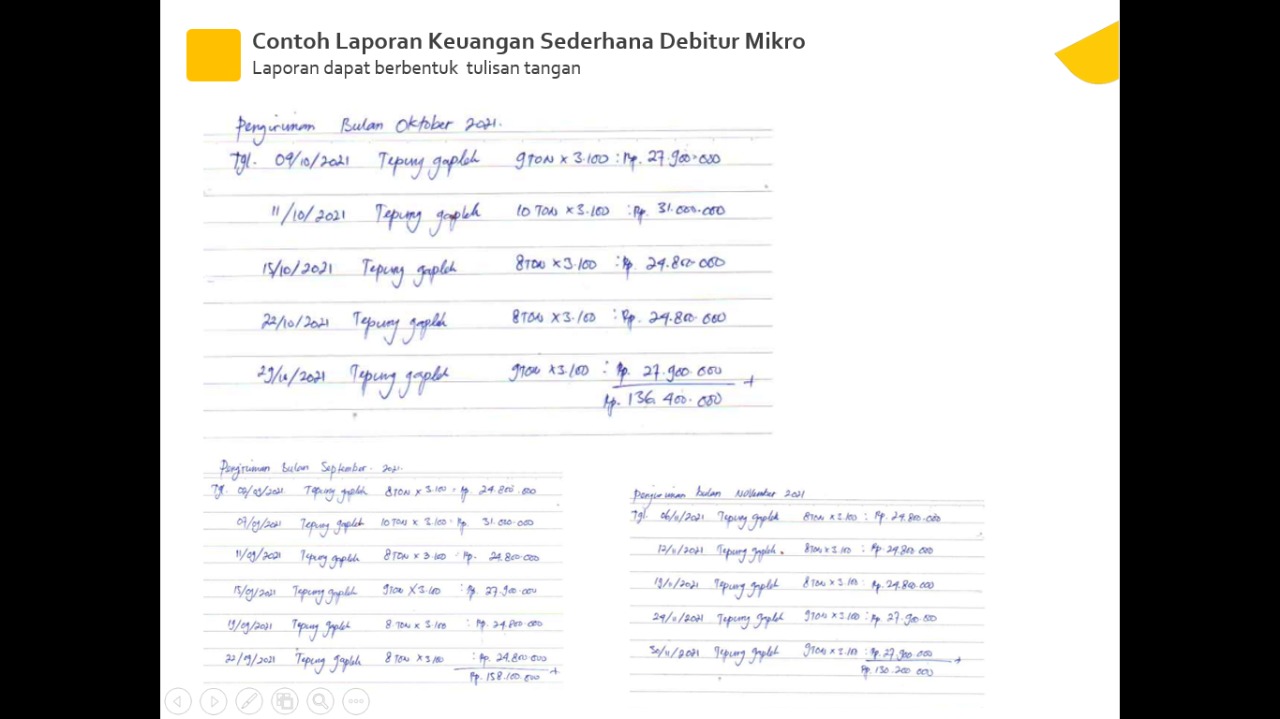 Contoh Laporan Keuangan Sederhana Debitur Mikro
Laporan dapat berbentuk tulisan tangan
Pengiriman Bulan Oktober 2021.
Tgl. 09/10/2021 Tepung gaplek 9 TON x 3.100 : Rp. 27.900.000
11/10/2021 Tepung gaplek 10 TON x 3.100 : Rp. 31.000.000
15/10/2021 Tepung gaplek 8 TON x 3.100 : Rp. 24.800.000
22/10/2021 Tepung gaplek 8 TON x 3.100 : Rp. 24.800.000
29/10/2021 Tepung gaplek 9 TON x 3.100 : Rp. 27.900.000 +
Rp. 136.400.000
Pengiriman Bulan September. 2021.
Tgl. Tepung gaplek 8 TON x 3.100 : Rp. 24.800.000
09/09/2021 Tepung gaplek 10 TON x 3.100 : Rp. 31.000.000
11/09/2021 Tepung gaplek 8 TON x 3.100 : Rp. 24.800.000
15/09/2021 Tepung gaplek 9 TON x 3.100 : Rp. 27.900.000
19/09/2021 Tepung gaplek 8 TON x 3.100 : Rp. 24.800.000
22/09/2021 Tepung gaplek 8 TON x 3.100 : Rp. 24.800.000 +
Rp. 158.100.000
Pengiriman Bulan November 2021
Tgl. 06/11/2021 Tepung gaplek 8 TON x 3.100 : Rp. 24.800.000
12/11/2021 Tepung gaplek 8 TON x 3.100 : Rp. 24.800.000
19/11/2021 Tepung gaplek 8 TON x 3.100 : Rp. 24.800.000
24/11/2021 Tepung gaplek 9 TON x 3.100 : Rp. 27.900.000
30/11/2021 Tepung gaplek 9 TON x 3.100 : Rp. 27.900.000 +
Rp. 130.200.000